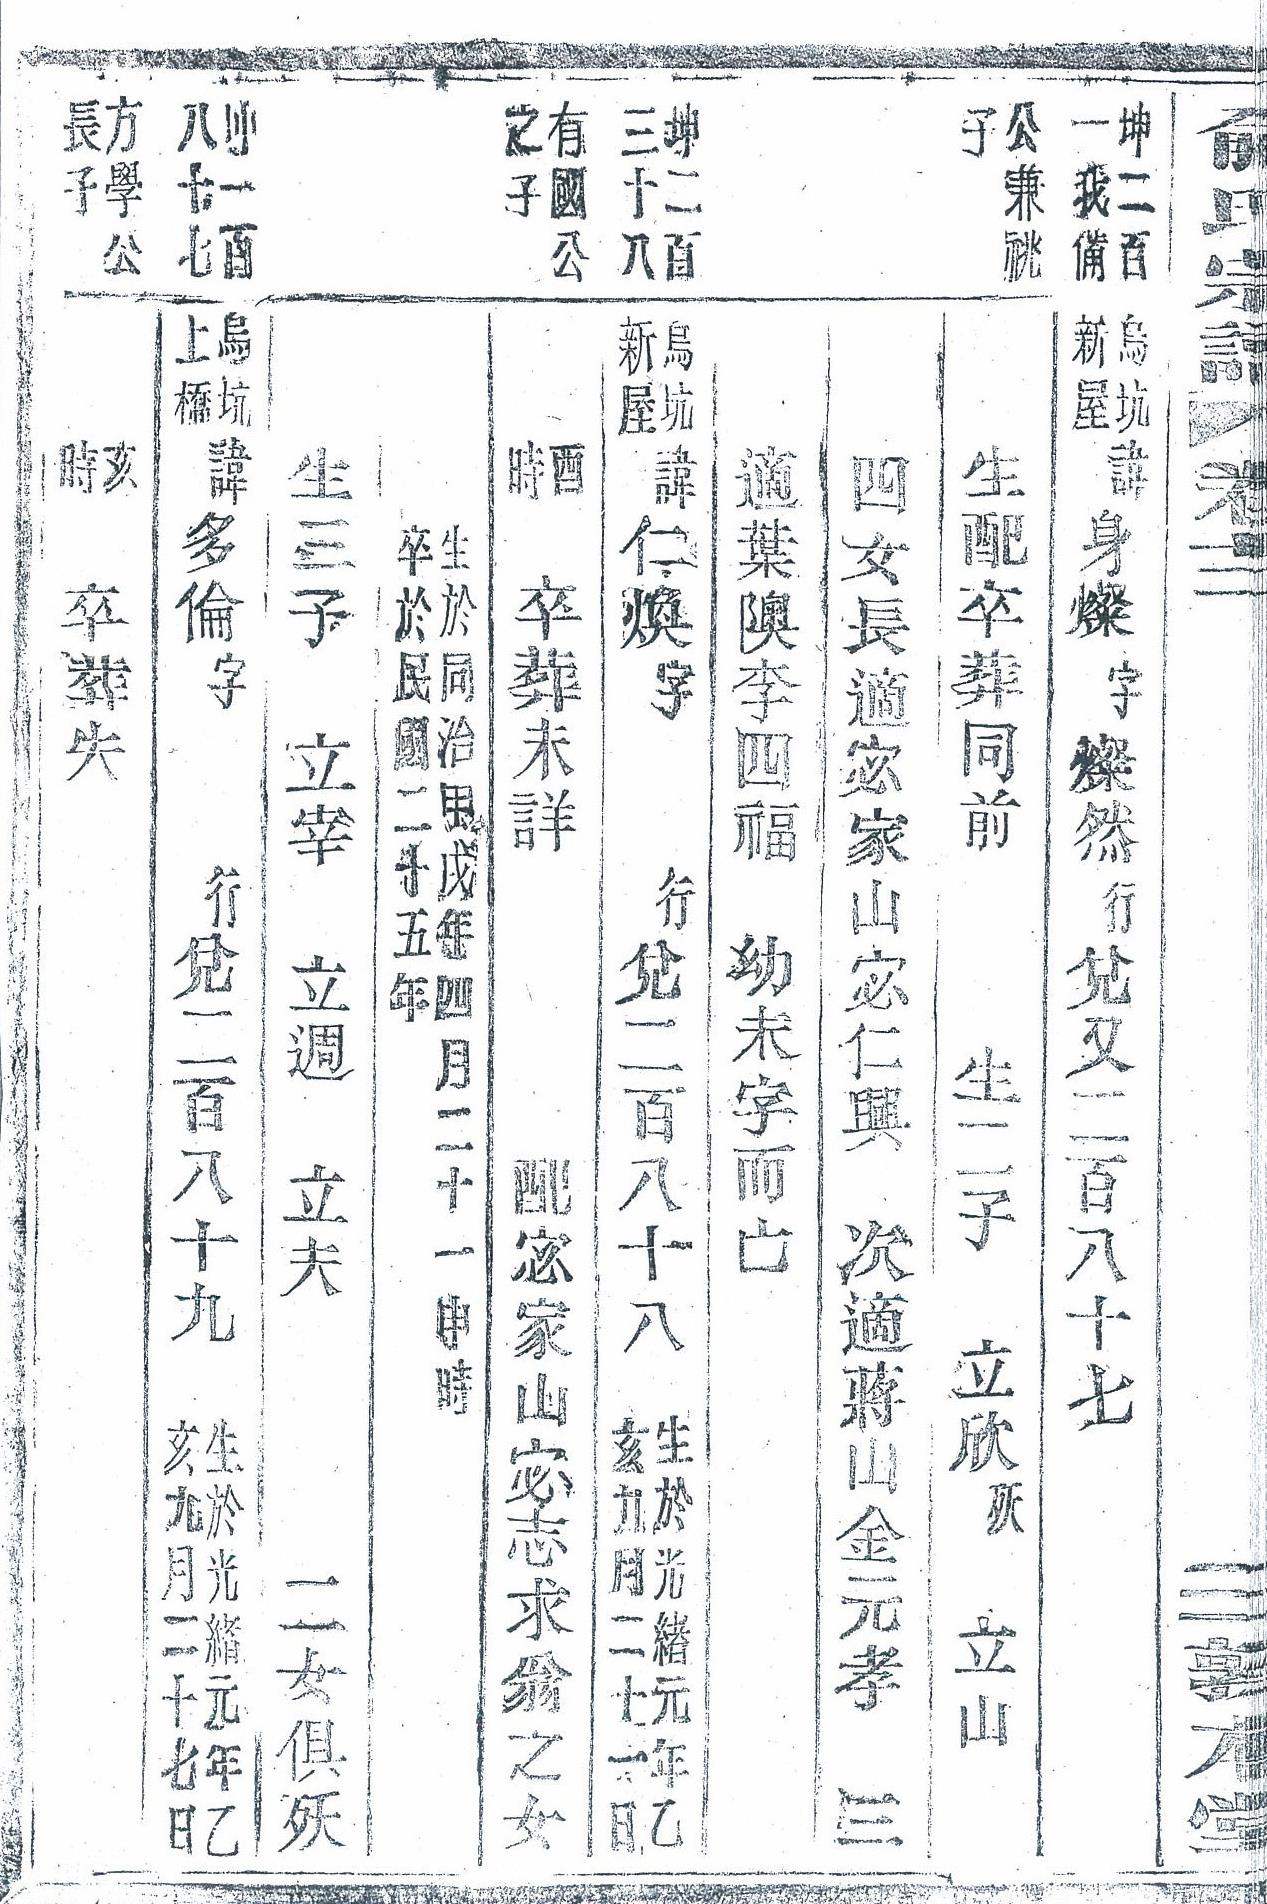 俞氏宗譜 卷三 三 敦本堂
坤二百
一我備
烏坑
新屋
諱身燦 字燦然 行兌又二百八十七
公兼祧
子
生配卒葬同前 生二子 立欣 殀 立山
四女長適宓家山宓仁興 次適蔣山金元孝 三
適葉隩李四福 幼未字而亡
坤二百
三十八
烏坑
新屋
諱仁煥 字 行兌二百八十八 生於光緒元年乙
亥九月二十一日
有國公
之子
酉
時
卒葬未詳 配宓家山宓志求翁之女
生於同治甲戌年四月二十一申時
卒於民國二十五年
生三子 立宰 立週 立夫 二女俱殀
坤一百
八十七
烏坑
上橋
諱多倫 字 行兌二百八十九 生於光緒元年乙
亥九月二十七日
方學公
長子
亥
時
卒葬失